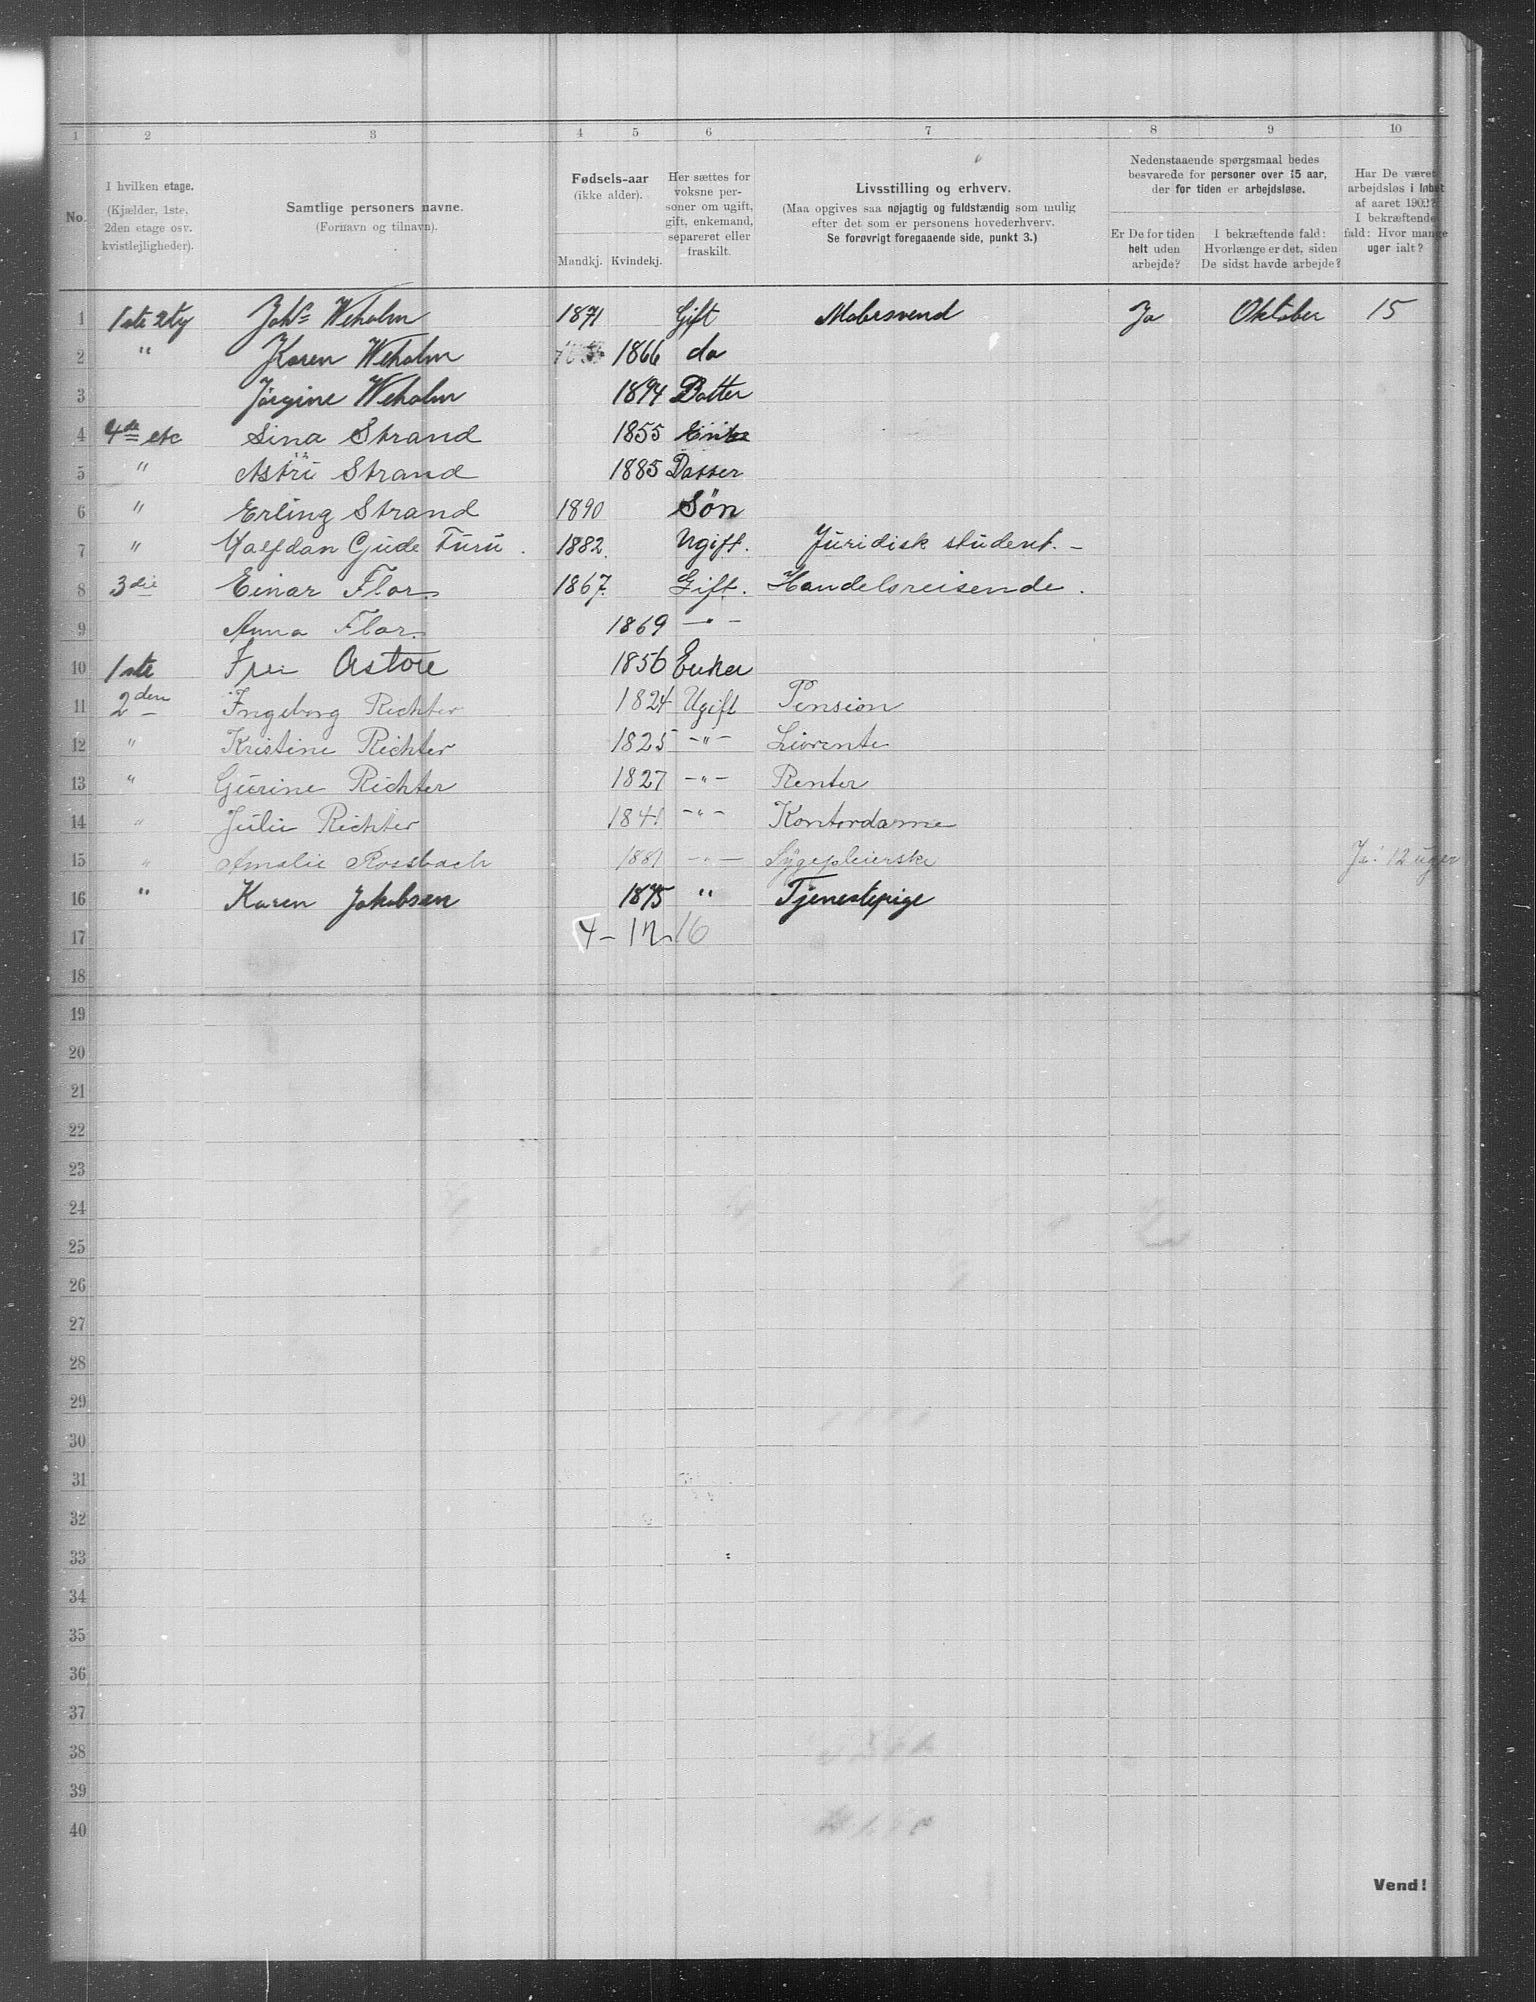 1 2 3 4 5 6 7 8 9 10
No.
I hvilken etage.
(Kjælder, 1ste.
2den etage osv.
kvistlejligheder).
Samtlige personers navne.
(Fornavn og tilnavn).
Fødsels-aar
(ikke alder).
Mandkj. Kvindekj.
Her sættes for
voksne per-
soner om ugift,
gift, enkemand,
separeret eller
fraskilt.
Livsstilling og erhverv.
(Maa opgives saa nøjagtig og fuldstændig som mulig
efter det som er personens hovederhverv.
Se forøvrigt foregaaende side, punkt 3.)
Nedenstaaende spørgsmaal bedes
besvarede for personer over 15 aar,
der for tiden er arbejdsløse.
Er De for tiden
helt uden
arbejde?
I bekræftende fald:
Hvorlænge er det, siden
De sidst havde arbejde?
Har De været
arbejdsløs i løbet
af aaret 1902?
I bekræftende
fald: Hvor mange
uger ialt?
1 1ste 2ty Johs Weholm 1871 Gift Malersvend Ja Oktober 15
2 " Karen Weholm 1866 do
3 Jørgine Weholm 1894 Datter
4 4de etc Sina Strand 1855 Enke
5 " Astri Strand 1885 Datter
6 " Erling Strand 1890 Søn
7 " Halfdan Gude Furu. 1882. Ugift. Juridisk student. –
8 3die Einar Flor. 1867. Gift. Handelsreisende.
9 Anna Flor. 1869 – " –
10 1ste Fru 1856 Enke
11 2den Ingeborg Richter 1824 Ugift Pension
12 " Kristine Richter 1825 – " – Livrente
13 " Gurine Richter 1827 – " – Renter
14 " Julie Richter 1841 – " – Kontordame
15 " Amalie Rossbach 1881 – " – Sygepleierske Ja! 12 uger
16 " Karen Jakobsen 1875 " Tjenestepige
17 4 – 12 16
18
19
20
21
22
23
24
25
26
27
28
29
30
31
32
33
34
35
36
37
38
39
40
Vend!